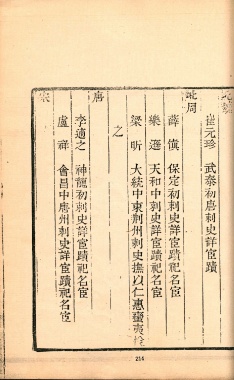 崔元珍 武泰初唐刺史詳宦蹟
北周
薛愼 保定初刺史詳宦蹟祀名宦
樂遜 天和中刺史詳宦蹟祀名宦
梁昕 大統中東荊州刺史撫以仁惠蠻夷
之
唐
李適之 神龍初刺史詳宦蹟祀名宦
盧庠 會昌中唐州刺史詳宦蹟祀名宦
宋
214